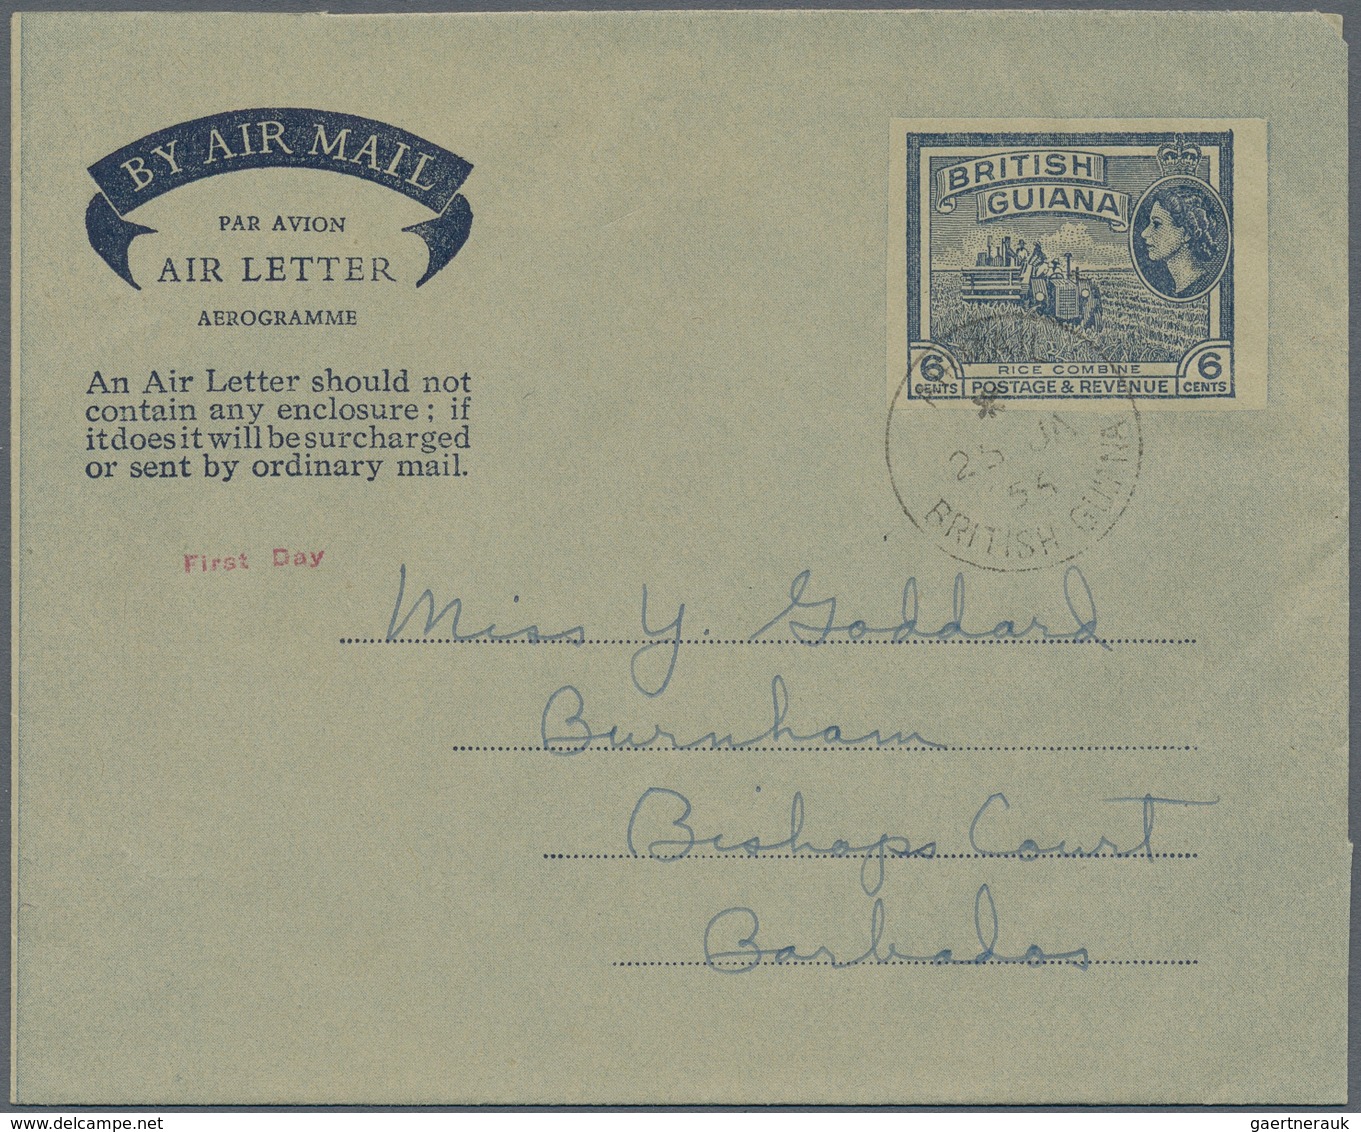 BY AIR MAIL
PAR AVION
AIR LETTER
AEROGRAMME
An Air Letter should not
contain any enclosure; if
it does it will be surcharged
or sent by ordinary mail.
First Day
BRITISH
GUIANA
6 CENTS
RICE COMBINE
POSTAGE & REVENUE
6 CENTS
JA
BRITISH GUIANA
Miss Y. Goddard
Burnham
Bishops Court
Barbados
gaertnerauk